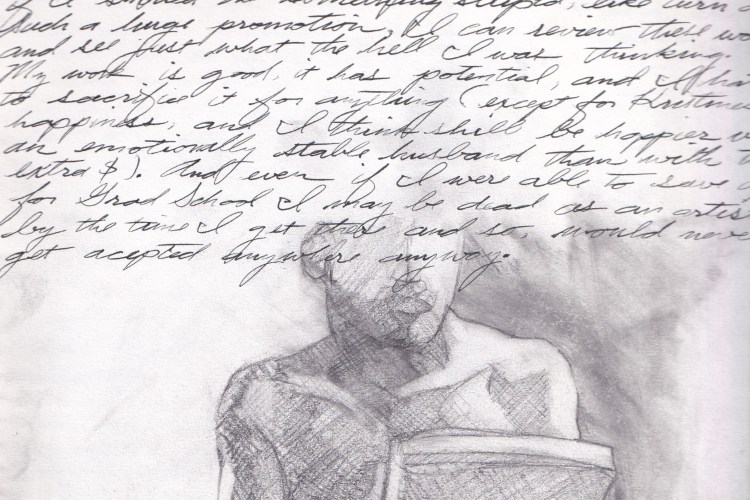 if I turned do something stupid, like turn d
such a huge promotion, I can review these wo
and see just what the hell I was thinking.
My work is good, it has potential, and I ha
to sacrifice it for anything (except for Kristina
happiness, and I think shell be happier w
an emotionally stable husband than with t
extra $). And even if I were able to save
for Grad School I may be dead as an artis
by the time I get there and so, would neve
get acepted anywhere anyway.